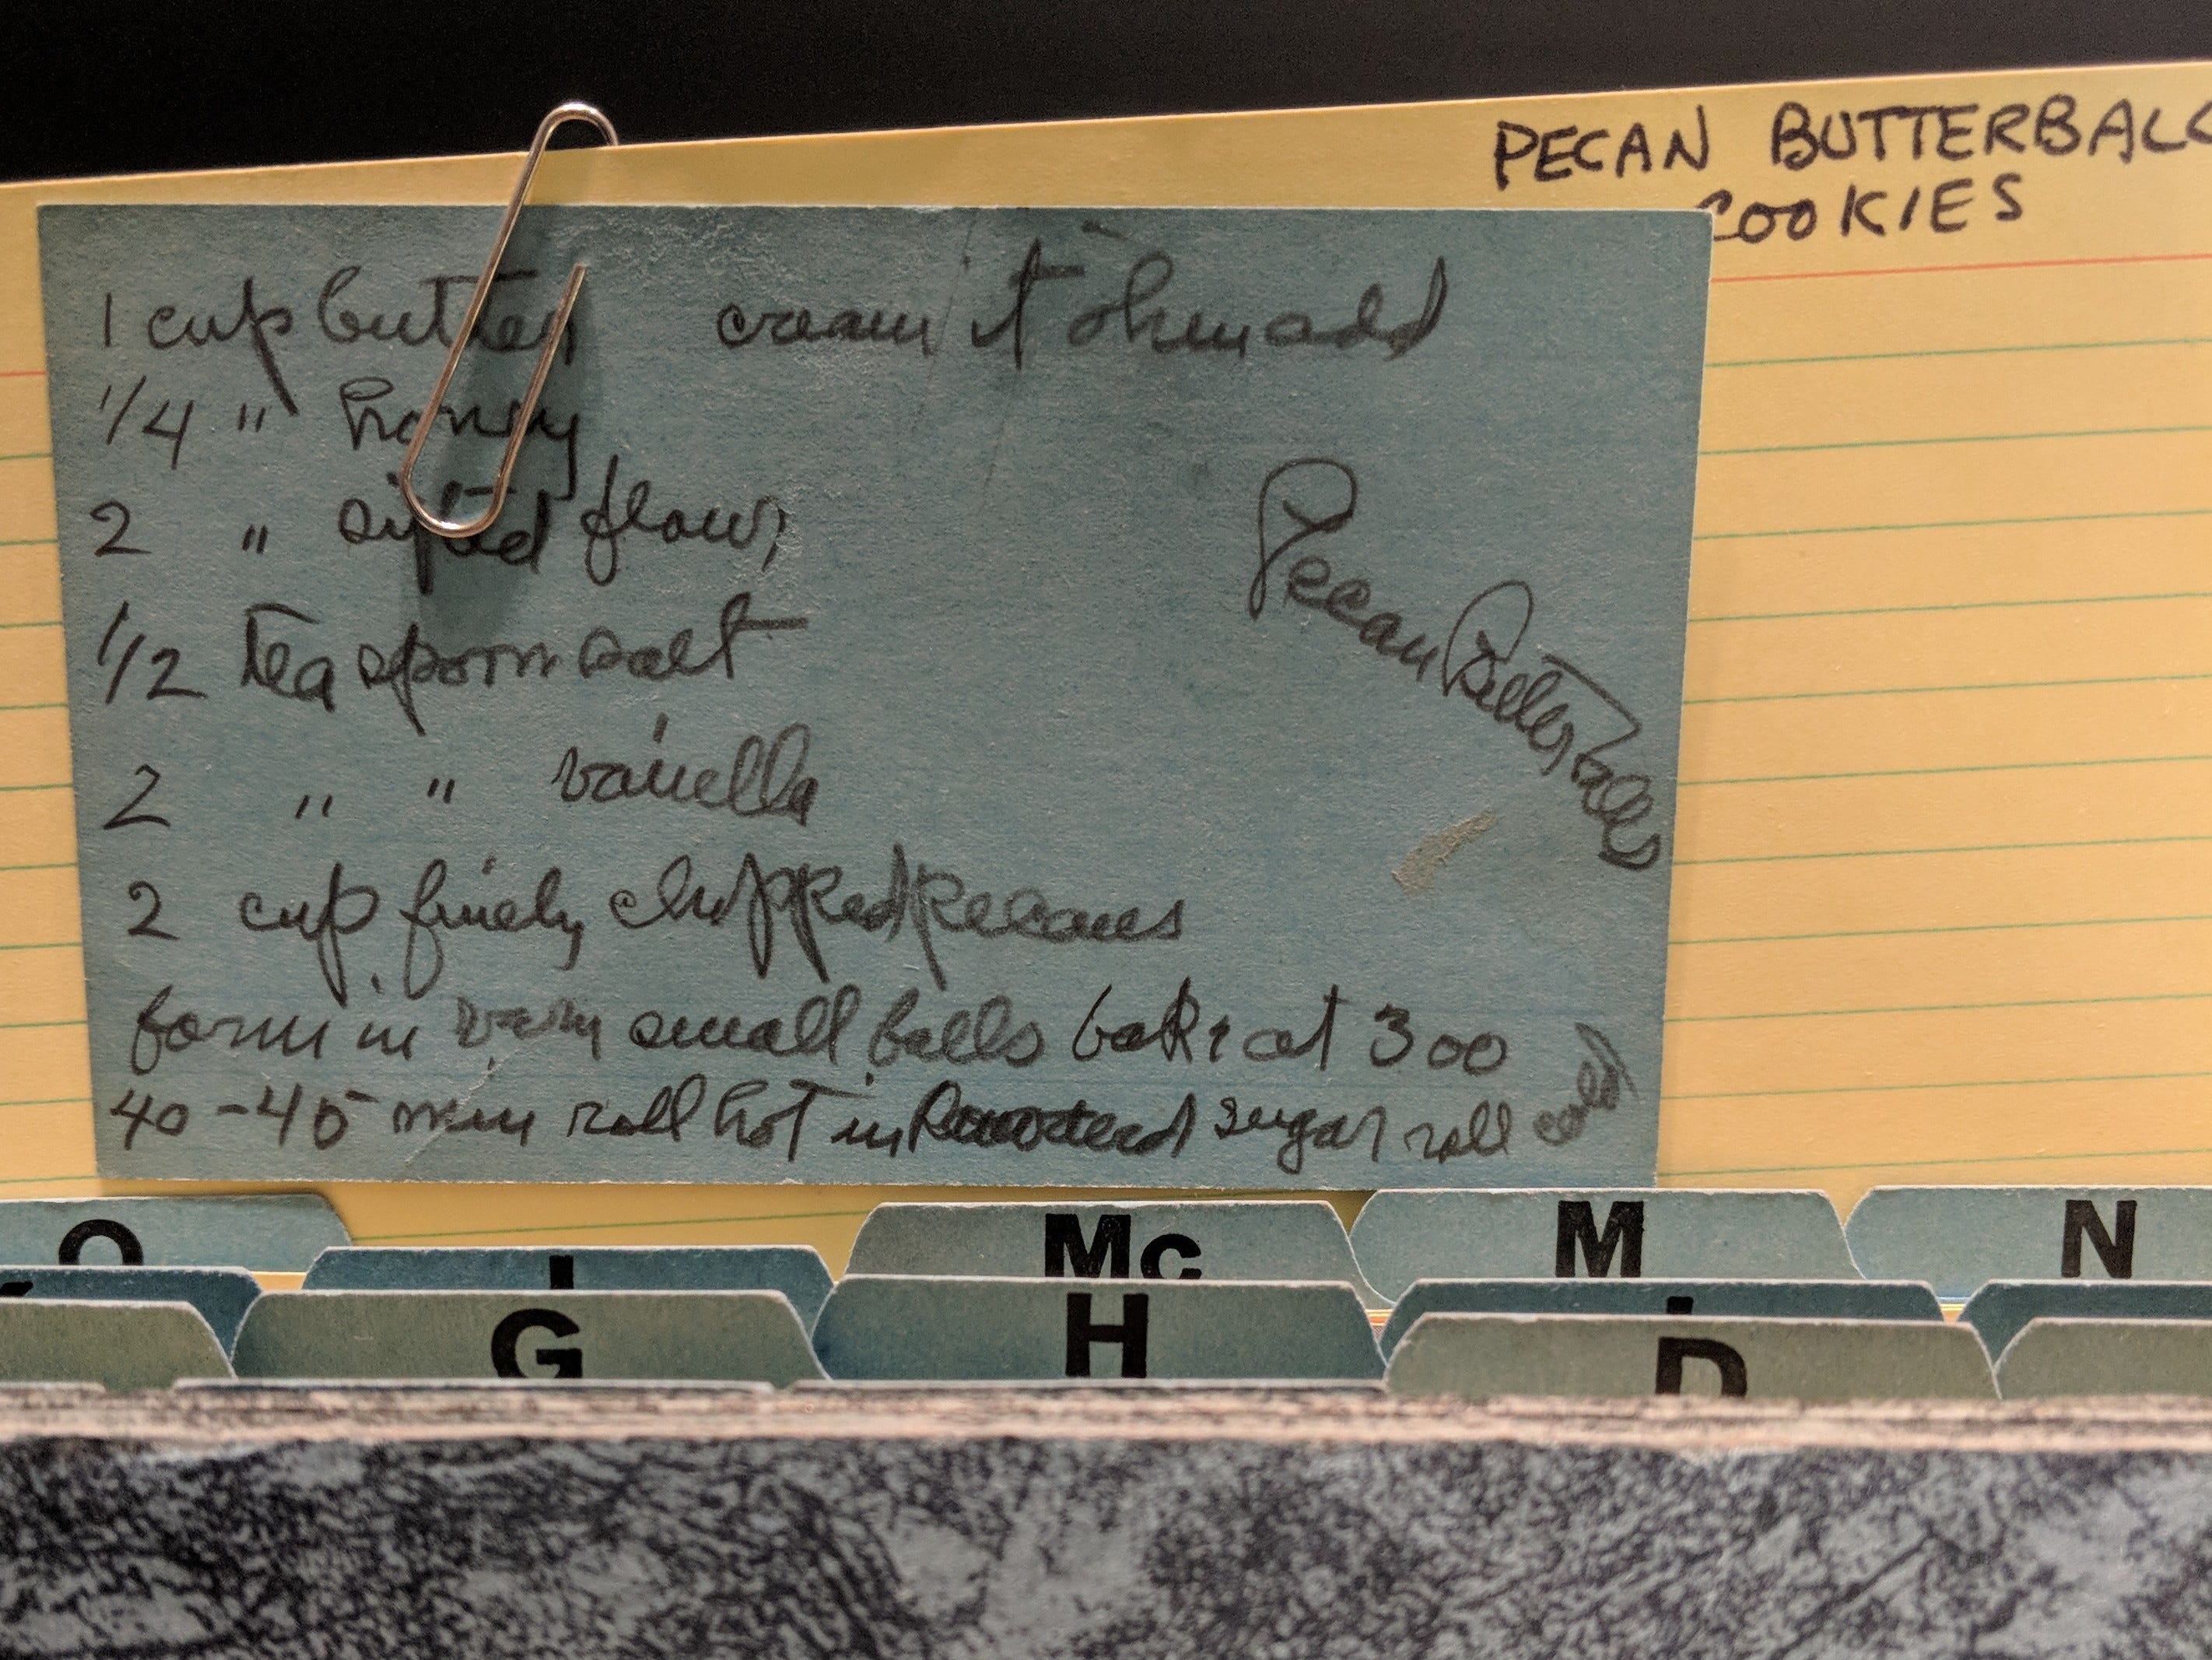 PECAN BUTTERBALL
COOKIES
1 cup butter cream it then add
1/4 " honey
2 " sifted flour
1/2 teaspoon salt
Pecan Butter balls
2 " " vanilla
2 cup finely chopped pecans
form in very small balls bake at 300
40-45 min roll hot in Powdered sugar roll cold
O
I
Mc
M
N
G
H
D